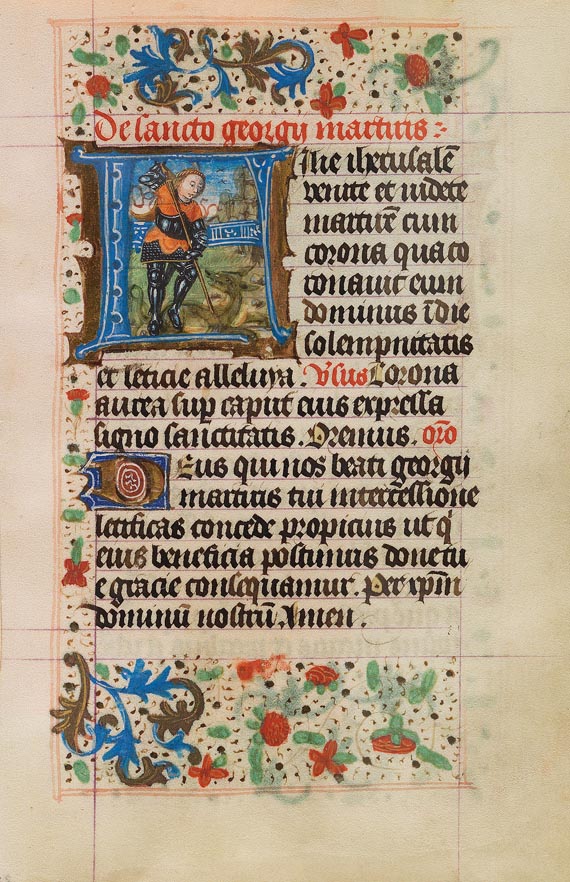 De sancto georgij martiris :
Filie iherusalē
venite et videte
martirē cum
corona qua co
ronauit eum
dominus ī die
solempnitatis
et leticie alleluya . Vsus Corona
aurea sup caput eius expressa
signo sanctitatis . Oremus . Oro
Deus qui nos beati georgij
martiris tui intercessione
letificas concede propicius ut q
eius beneficia poscimus dono tu
e gracie consequamur . Per xpm̄
dominū nostrū Amen .